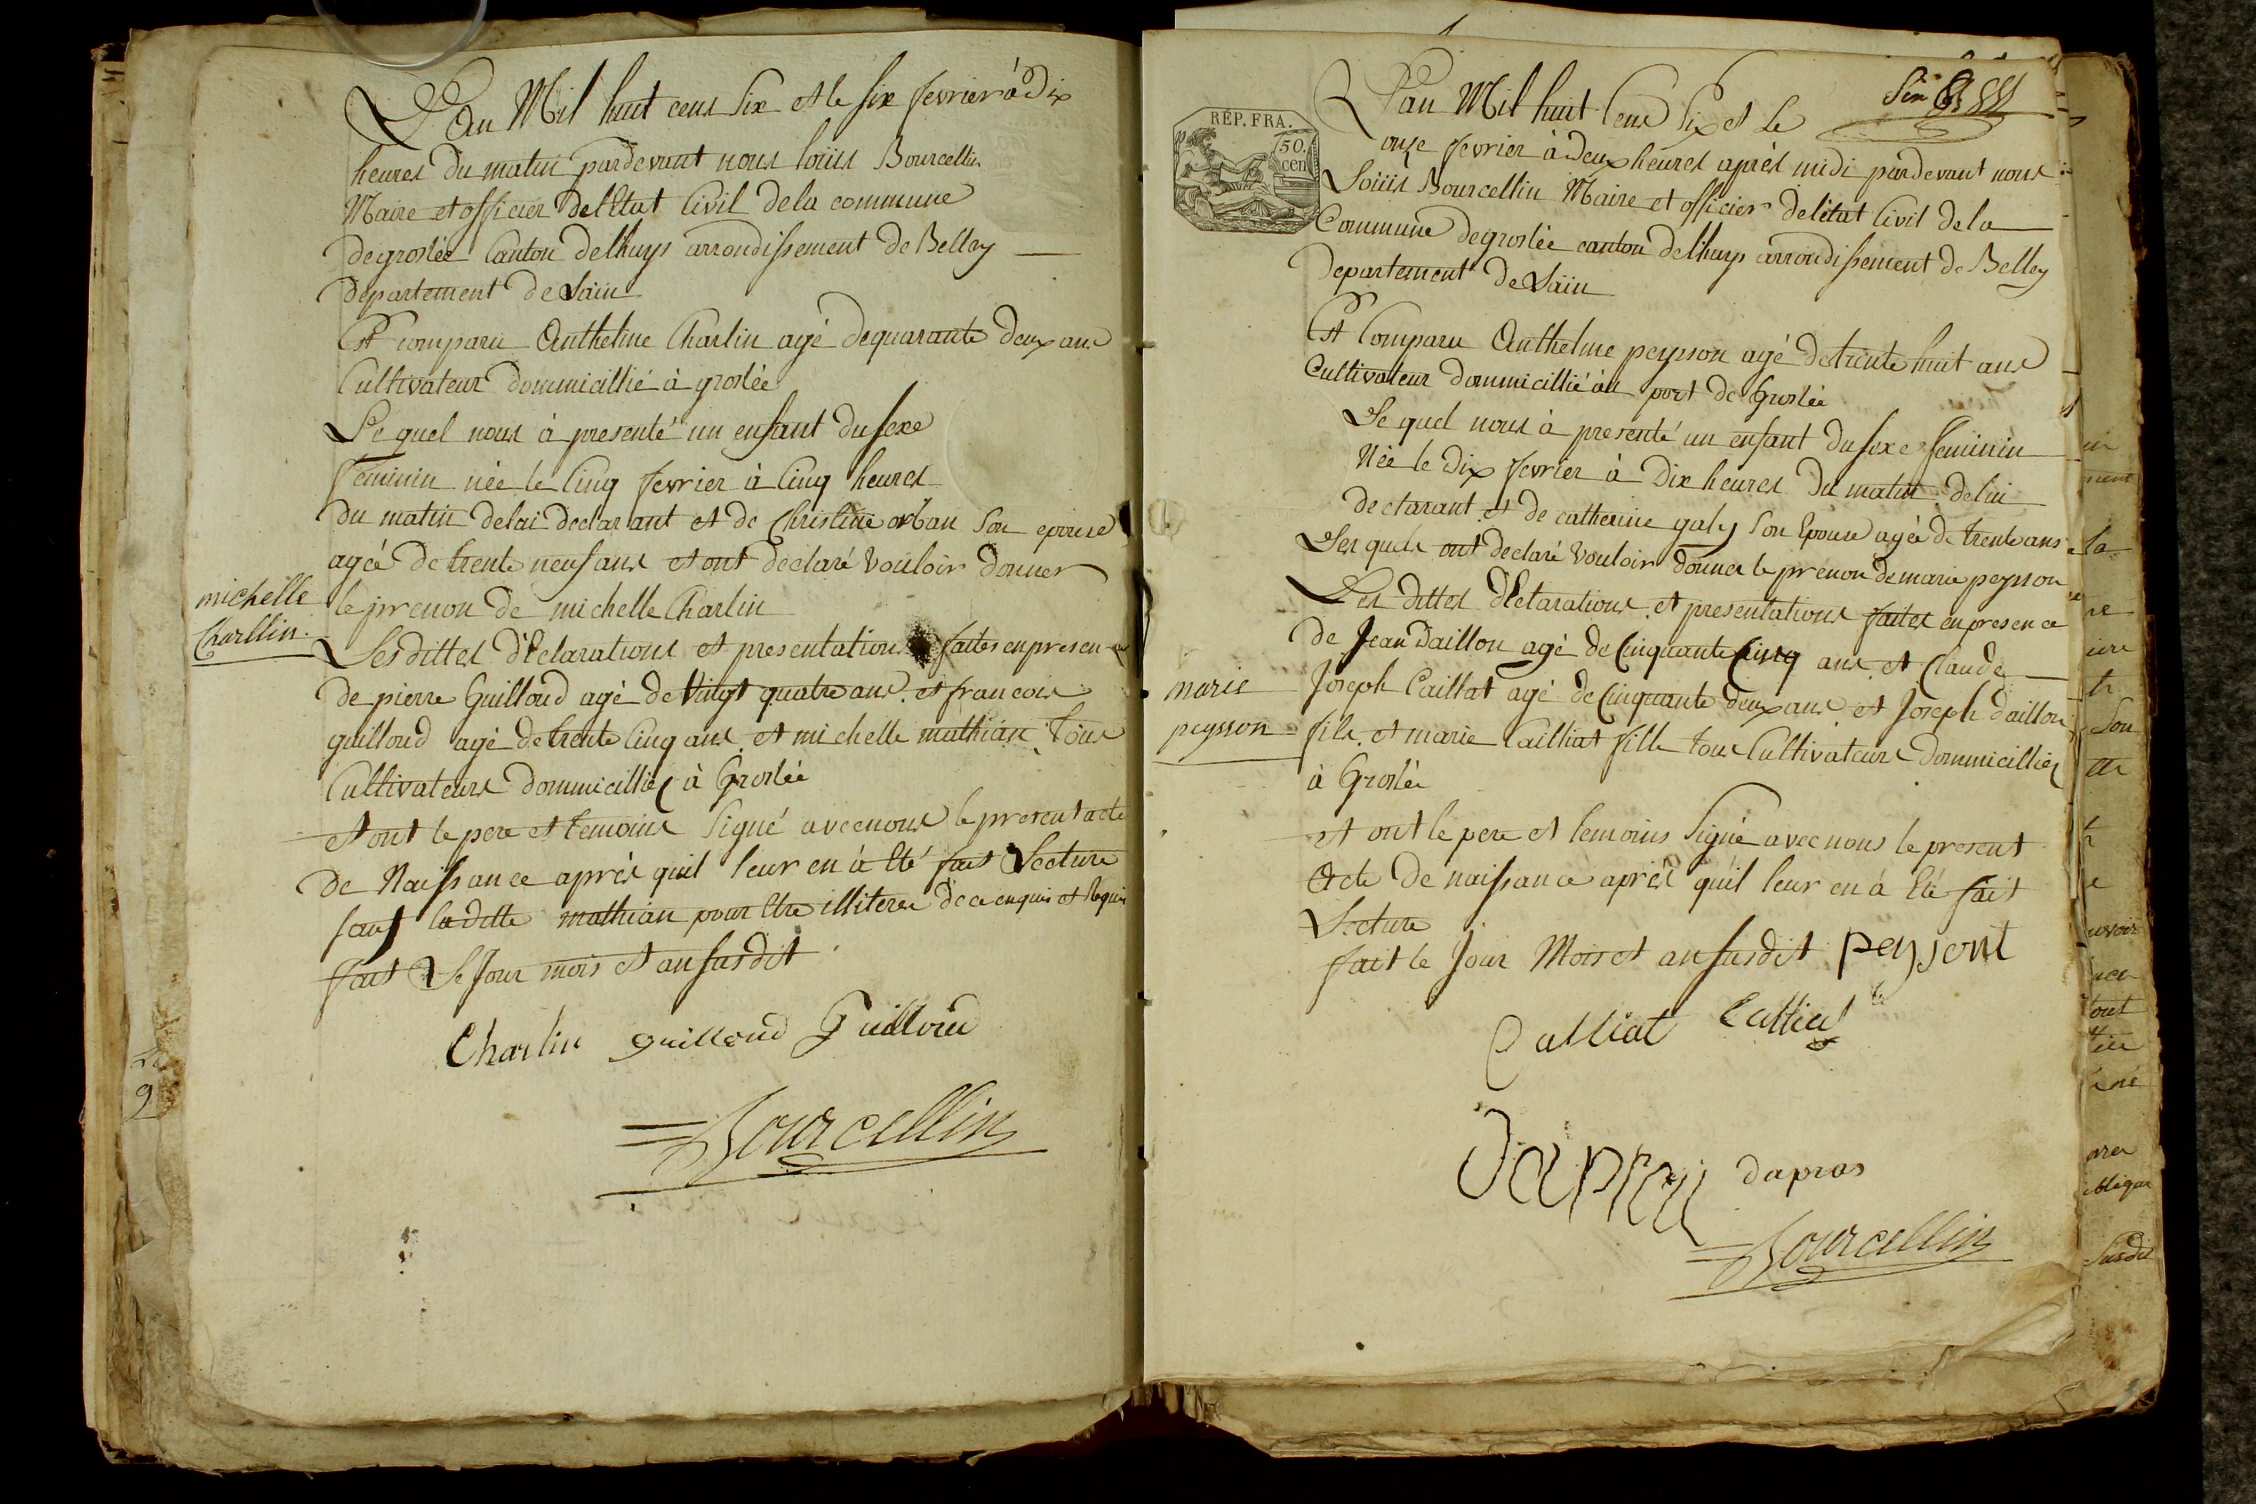 L'an Mil huit cens six et le six fevrier à dix
heures du matin pardevant nous loüis Bourcellin
Maire et officier del'Etat Civil dela commune
degroslée Canton delhuys arrondissement de Belley
Departement de Lain
Est comparu Anthelme Charlin agé dequarante deux ans
Cultivateur dommicillié à groslée
Le quel nous à presenté un enfant du sexe
feminin née le cinq fevrier à cinq heures
du matin delui declarant et de Christine orban son epouse
agée de trente neuf ans et ont declaré vouloir donner
le prenon de michelle Charlin
michelle
Charllin
Lesdittes déClarations et presentations faites enpresence
de pierre Guilloud agé de vingt quatre ans et francois
guilloud agé detrente cinq ans et michelle mathian Tous
Cultivateurs dommicilliés à Groslée
et ont le pere et temoins signé avecnous le present acte
de Naissance aprés quil leur en à Eté fait Lecture
sauf laditte mathian pour Etre illiterée dece enquis et Requis
fait Le Jour mois et an susdit
Charlin guilloud Guilloud
Bourcellin
9
RÉP. FRA.
50.
cen
L'an Mil huit cens six et le
onze fevrier à deux heures aprés midi pardevant nous
Loüis Bourcellin Maire et officier delétat Civil dela
Commune degroslée canton delhuys arrondissement de Belley
Departement de Lain
Est Comparu Anthelme peysson agé detrente huit ans
Cultivateur dommicillié au port de Groslée
Le quel nous à presenté un enfant du sexe feminin
Née le dix fevrier à dix heures du matin delui
declarant et de catherine galy son Epouse agée de trente ans
Les quels ont declaré vouloir donner le prenon de marie peysson
Les dittes déClarations et presentations faites enpresence
de Jean Daillon agé de Cinquante Cinq ans et Claude
marie
peysson
Joseph Caillat agé de Cinquante deux ans et Joseph daillon
fils et marie Cailliat fille tous Cultivateurs dommicilliés
à Groslée
et ont le pere et temoins signé avecnous le present
Acte de naissance aprés qu'il leur en à Eté fait
Lecture
fait le Jour Mois et an susdit peysont
Calliat
dapras
Bourcellin